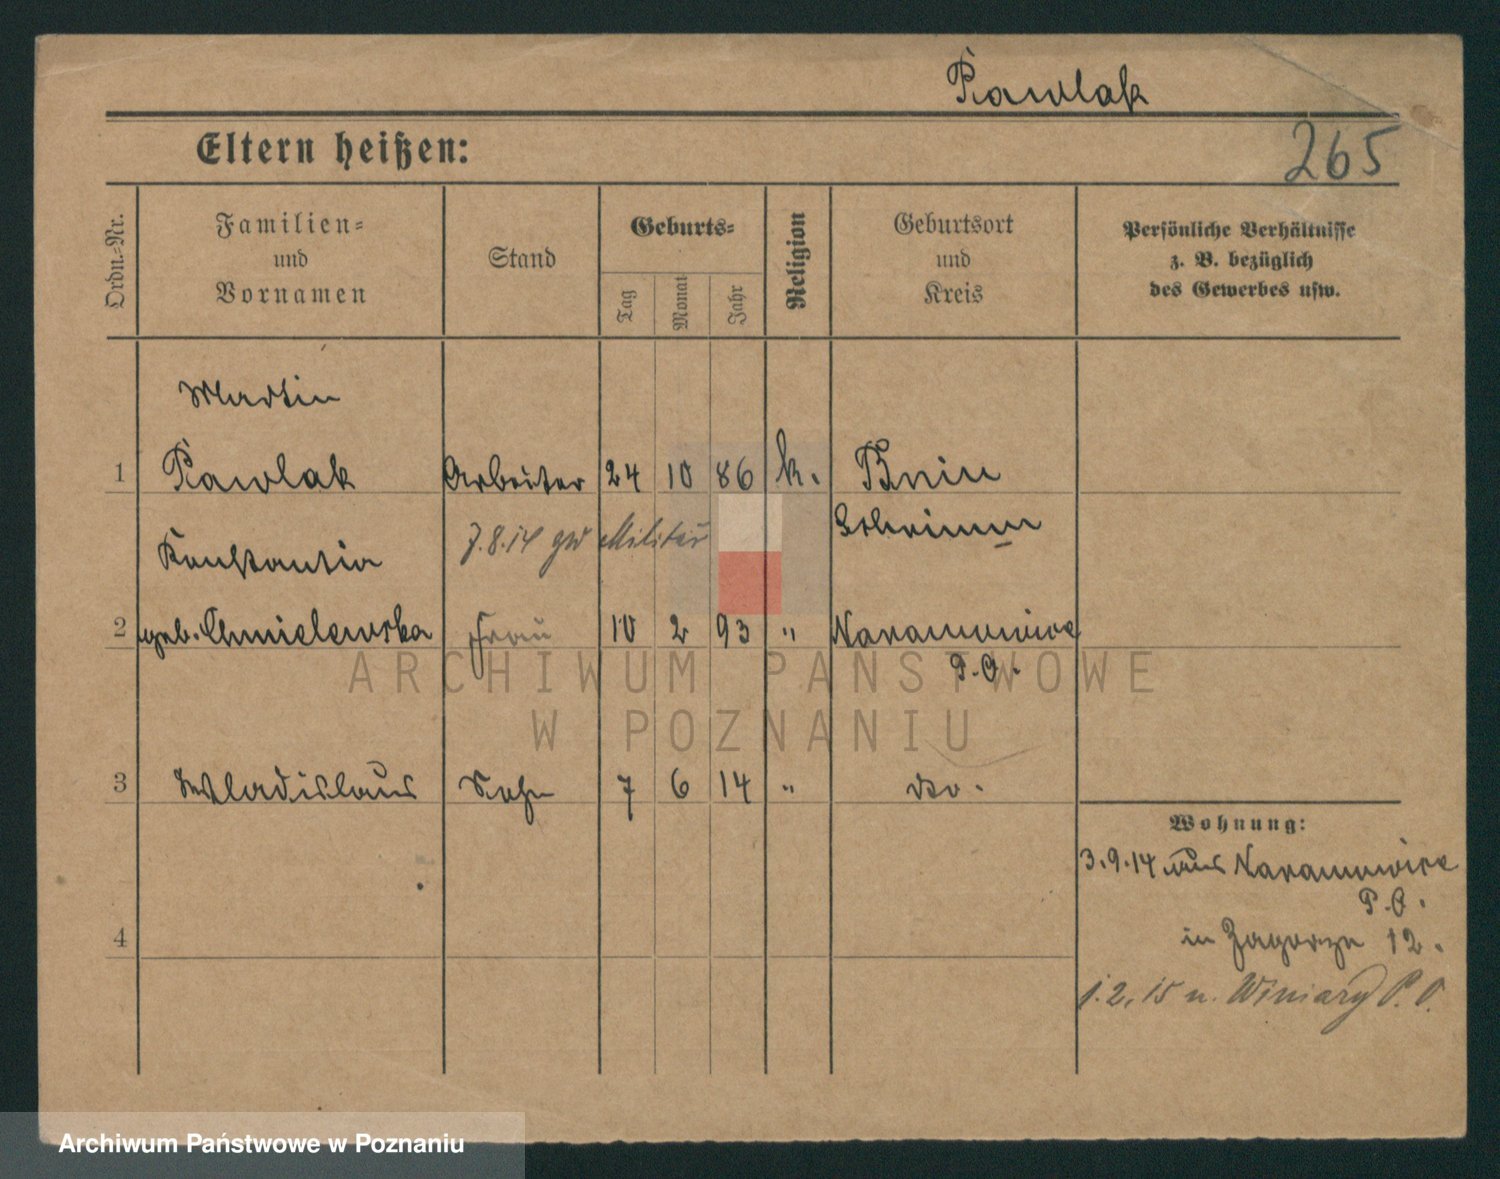 Pawlak
265
Eltern heißen:
Ordn.-Nr.
Familien-
und
Vornamen
Stand
Geburts-
Tag
Monat
Jahr
Religion
Geburtsort
und
Kreis
Persönliche Verhältnisse
z. B. bezüglich
des Gewerbes usw.
Martin
1 Pawlak Arbeiter 24 10 86 k. Bnin
Schrimm
7.8.14 Militär
Konstantia
2 geb. Chmielewska Frau 10 2 93 " Naramowice
P.O.
3 Wladislaus Sohn 7 6 14 " do.
Wohnung:
3.9.14 aus Naramowice
P.O.
in Zagorze 12.
4
1.2.15 n. Winiary P.O.
ARCHIWUM PAŃSTWOWE
W POZNANIU
Archiwum Państwowe w Poznaniu